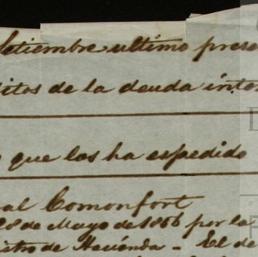 Setiembre ultimo prese
itos de la deuda inter
que los ha espedido
al Comonfort
28 de Mayo de 1866 por la
istro de Hacienda - El de